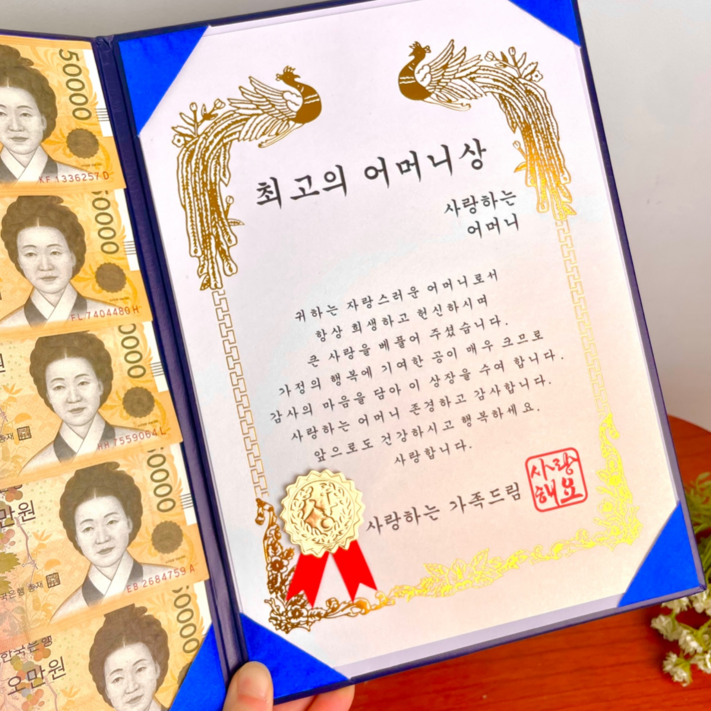 50000
KF 1336257 D
0000
FL 7404480 H
0000
원
총재
HH 7559064 L
0000
만원
은행 총재
EB 2684759 A
0000
한국은행
오만원
최고의 어머니상
사랑하는
어머니
귀하는 자랑스러운 어머니로서
항상 희생하고 헌신하시며
큰 사랑을 베풀어 주셨습니다.
가정의 행복에 기여한 공이 매우 크므로
감사의 마음을 담아 이 상장을 수여 합니다.
사랑하는 어머니 존경하고 감사합니다.
앞으로도 건강하시고 행복하세요.
사랑합니다.
사랑하는 가족드림
사랑
해요